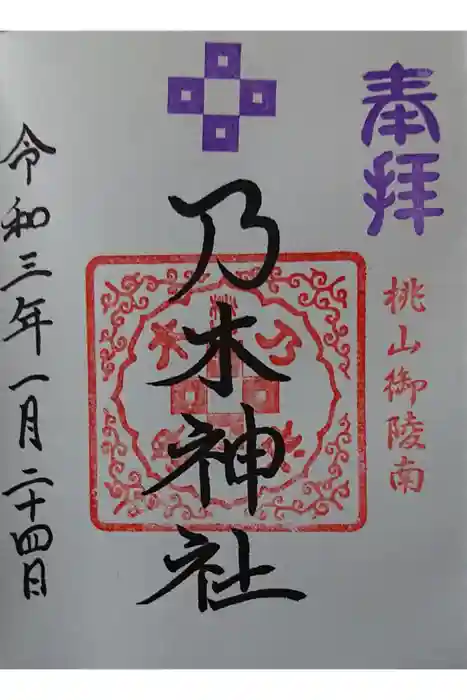 奉拝
桃山御陵南
乃木神社
乃木
令和三年一月二十四日